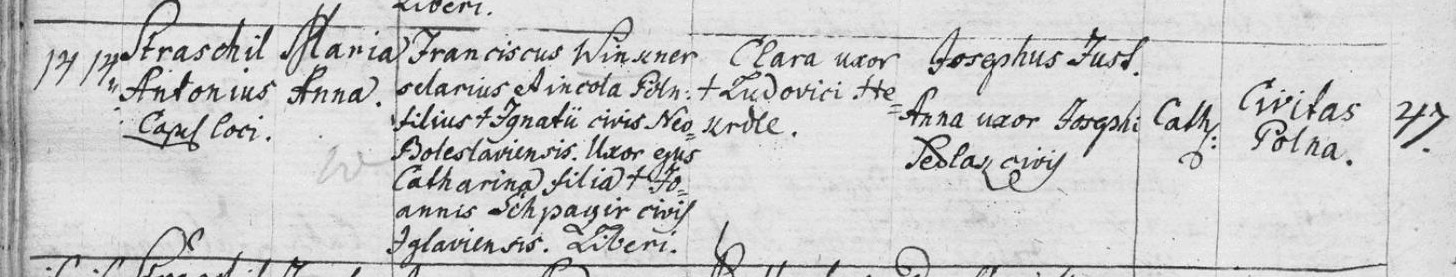 Liberi.
14 14 Straschil
Antonius
Cap. loci.
Maria
Anna.
Franciscus Winkner
selarius et incola Poln:
filius † Ignatii civis Neo=
Boleslaviensis. Uxor ejus
Catharina filia † Jo=
annis Schpagir civis
Iglaviensis. Liberi.
Clara uxor
† Ludovici He=
urdle.
Josephus Just.
Anna uxor Josephi
Pedlaz civis
Cath:
Civitas
Polna.
247.